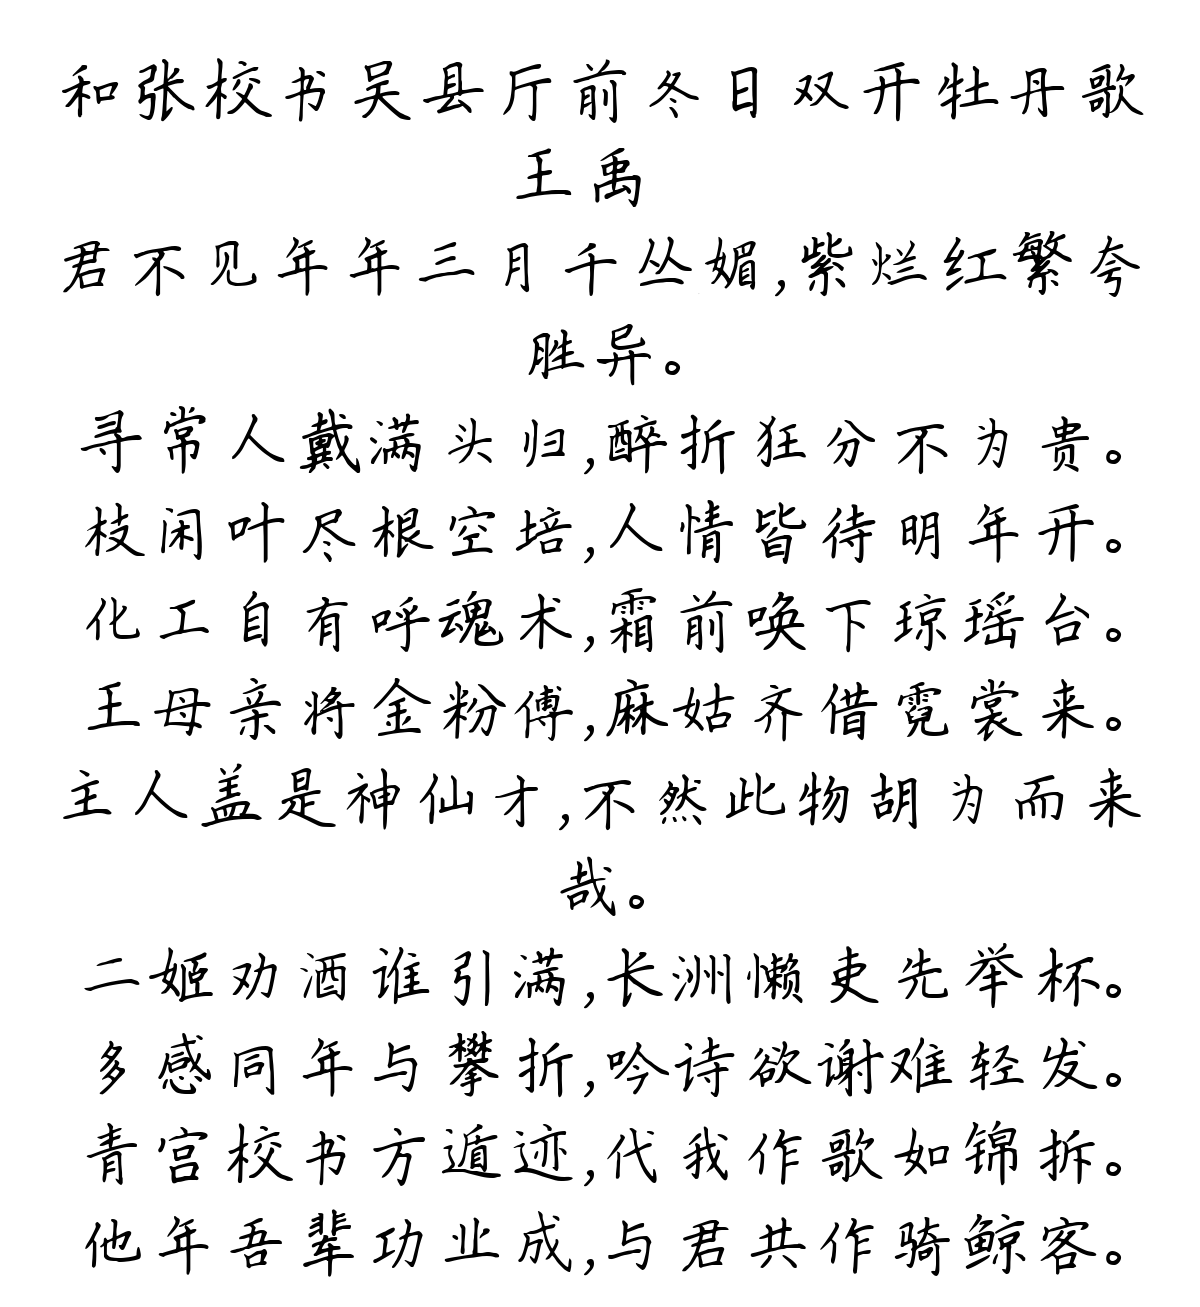 和张校书吴县厅前冬日双开牡丹歌
王禹
君不见年年三月千丛媚,紫烂红繁夸
胜异。
寻常人戴满头归,醉折狂分不为贵。
枝闲叶尽根空培,人情皆待明年开。
化工自有呼魂术,霜前唤下琼瑶台。
王母亲将金粉傅,麻姑齐借霓裳来。
主人盖是神仙才,不然此物胡为而来
哉。
二姬劝酒谁引满,长洲懒吏先举杯。
多感同年与攀折,吟诗欲谢难轻发。
青宫校书方遁迹,代我作歌如锦拆。
他年吾辈功业成,与君共作骑鲸客。